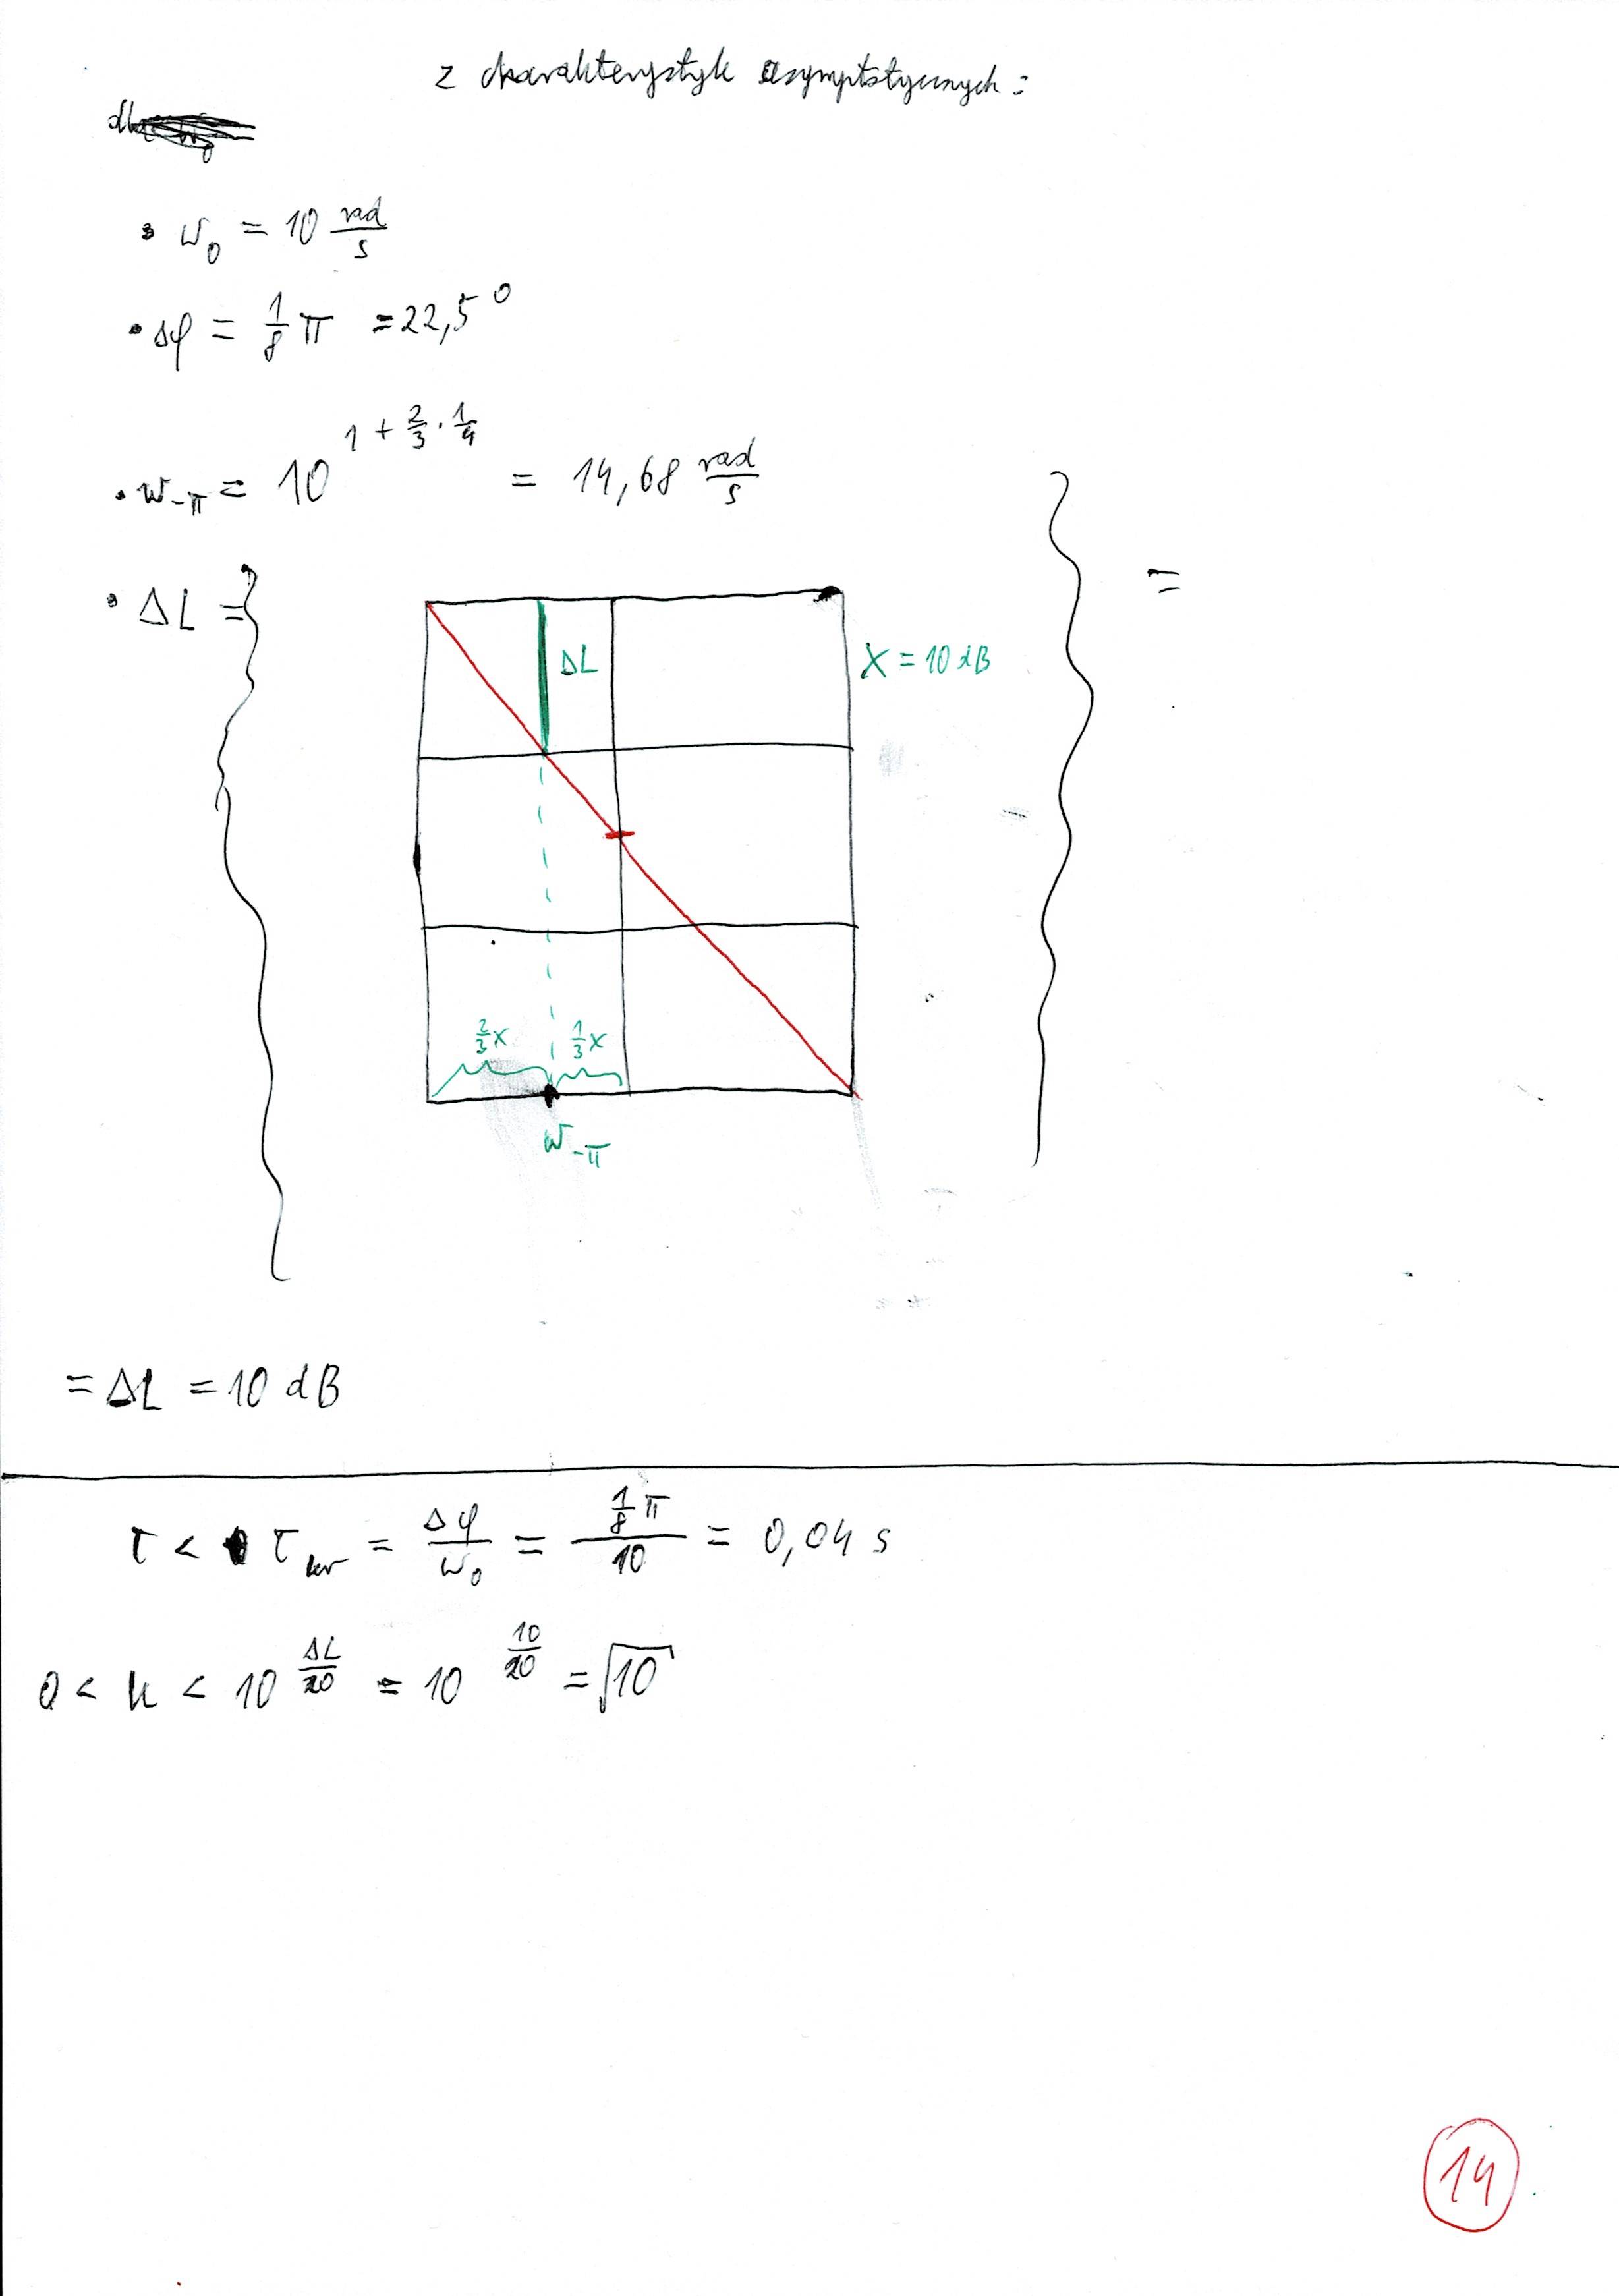 z charakterystyk asymptotycznych:
• ω₀ = 10 rad/s
• Δφ = 1/8 π = 22,5°
• ω₋π = 10^(1 + 2/3 · 1/4) = 14,68 rad/s
• ΔL =
=
ΔL
X = 10 dB
2/3 x 1/3 x
ω₋π
= ΔL = 10 dB
τ < τkr = Δφ/ω₀ = (1/8 π)/10 = 0,04 s
0 < k < 10^(ΔL/20) = 10^(10/20) = √10
14